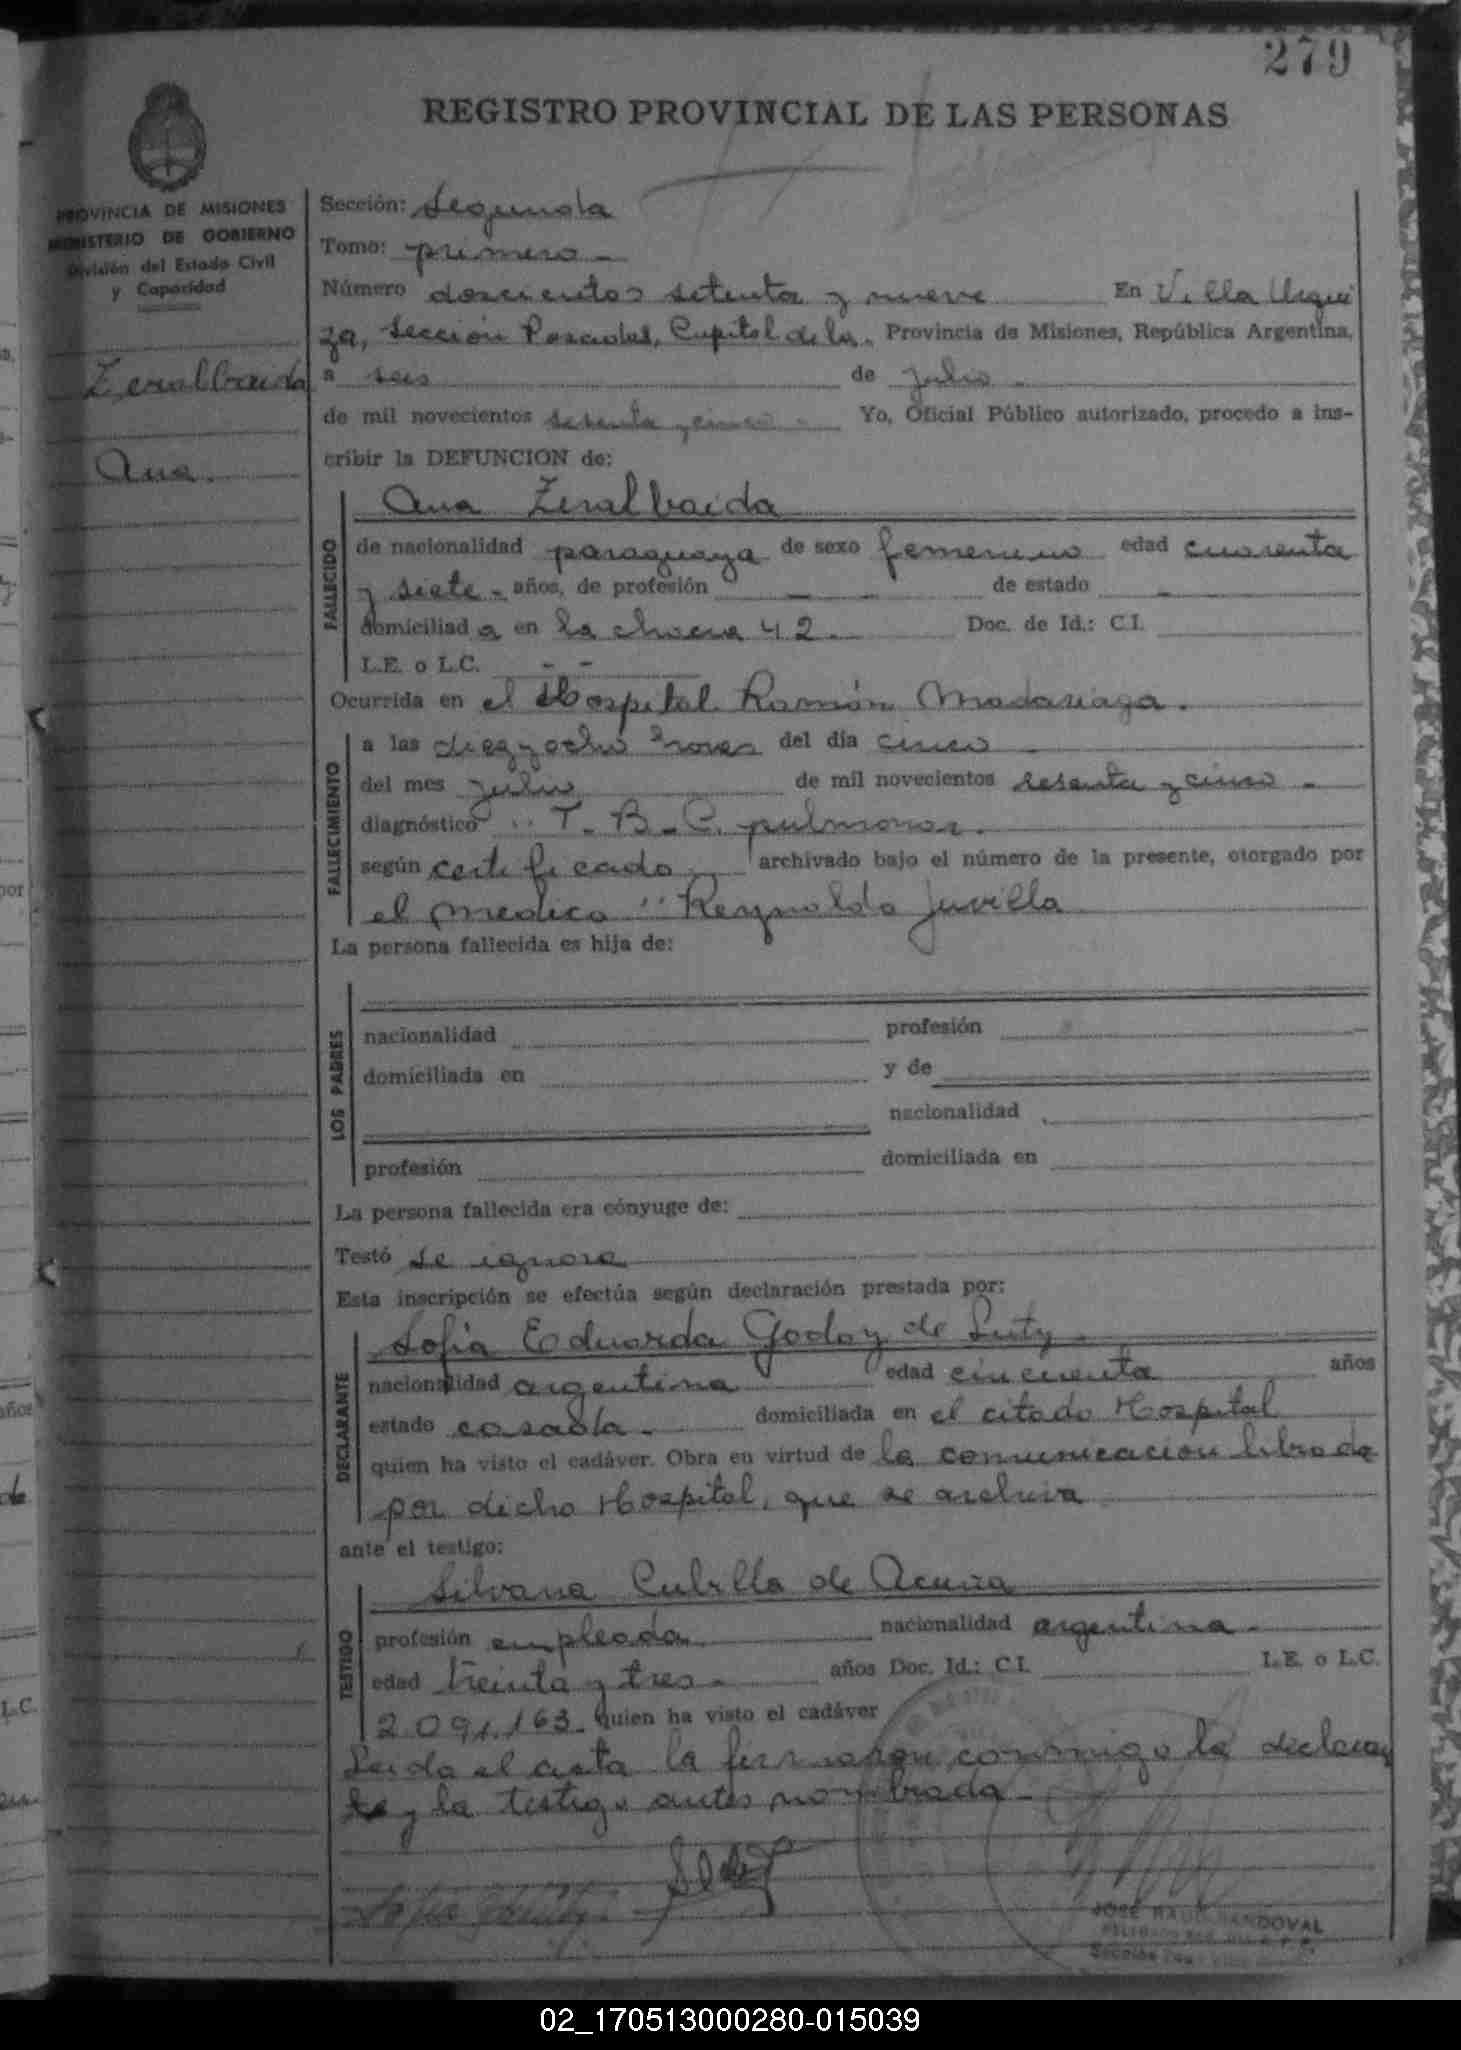 279
REGISTRO PROVINCIAL DE LAS PERSONAS
PROVINCIA DE MISIONES
MINISTERIO DE GOBIERNO
División del Estado Civil
y Capacidad
Zeralbaida
Ana.
Sección: Segunda
Tomo: primero -
Número doscientos setenta y nueve En Villa Urqui
za, Sección Posadas, Capital de la, Provincia de Misiones, República Argentina,
a seis de julio -
de mil novecientos sesenta y cinco - Yo, Oficial Público autorizado, procedo a ins-
cribir la DEFUNCION de:
Ana Zeralbaida
FALLECIDO
de nacionalidad paraguaya de sexo femenino edad cuarenta
y siete - años, de profesión - - de estado -
domiciliad a en la chacra 42. Doc. de Id.: C.I.
L.E. o L.C. - -
Ocurrida en el Hospital Ramón Madariaga.
FALLECIMIENTO
a las diez y ocho horas del día cinco -
del mes julio de mil novecientos sesenta y cinco -
diagnóstico "T. B. C. pulmonar.
según certificado archivado bajo el número de la presente, otorgado por
el medico "Reynaldo Juvilla
La persona fallecida es hija de:
LOS PADRES
nacionalidad profesión
domiciliada en y de
nacionalidad
profesión domiciliada en
La persona fallecida era cónyuge de:
Testó se ignora
Esta inscripción se efectúa según declaración prestada por:
DECLARANTE
Sofía Eduarda Godoy de
nacionalidad argentina edad cincuenta años
estado casada - domiciliada en el citado Hospital
quien ha visto el cadáver. Obra en virtud de la comunicación librada
por dicho Hospital, que se archiva
ante el testigo:
TESTIGO
Silvana Cubilla de Acuña
profesión empleada nacionalidad argentina -
edad treinta y tres - años Doc. Id.: C.I. L.E. o L.C.
2.091.163. quien ha visto el cadáver
Leida el acta la firmaron conmigo la declaran
te y la testigo antes nombrada -
JOSE RAUL SANDOVAL
02_170513000280-015039